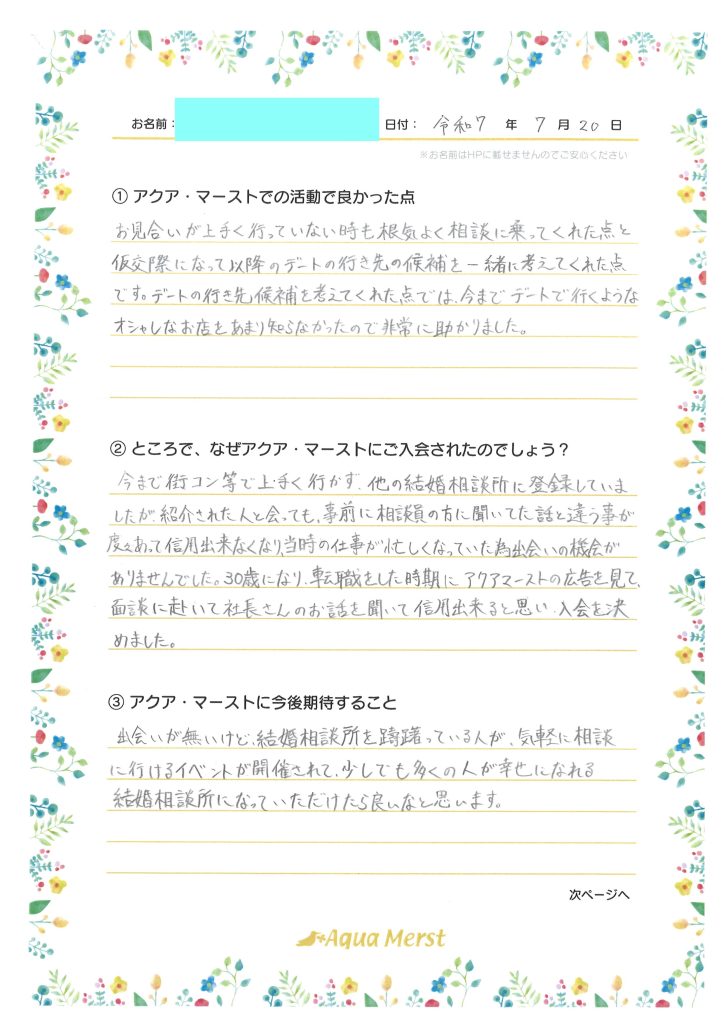 お名前： 日付： 令和7 年 7 月 20 日
※お名前はHPに載せませんのでご安心ください
① アクア・マーストでの活動で良かった点
お見合いが上手く行っていない時も根気よく相談に乗ってくれた点と
仮交際になって以降のデートの行き先の候補を一緒に考えてくれた点
です。デートの行き先候補を考えてくれた点では、今までデートで行くような
オシャレなお店をあまり知らなかったので非常に助かりました。
② ところで、なぜアクア・マーストにご入会されたのでしょう？
今まで街コン等で上手く行かず、他の結婚相談所に登録していま
したが、紹介された人と会っても、事前に相談員の方に聞いてた話と違う事が
度々あって信用出来なくなり、当時の仕事が忙しくなっていた為出会いの機会が
ありませんでした。30歳になり、転職をした時期にアクアマーストの広告を見て、
面談に赴いて社長さんのお話を聞いて信用出来ると思い、入会を決
めました。
③ アクア・マーストに今後期待すること
出会いが無いけど、結婚相談所を躊躇っている人が、気軽に相談
に行けるイベントが開催されて、少しでも多くの人が幸せになれる
結婚相談所になっていただけたら良いなと思います。
次ページへ
Aqua Merst